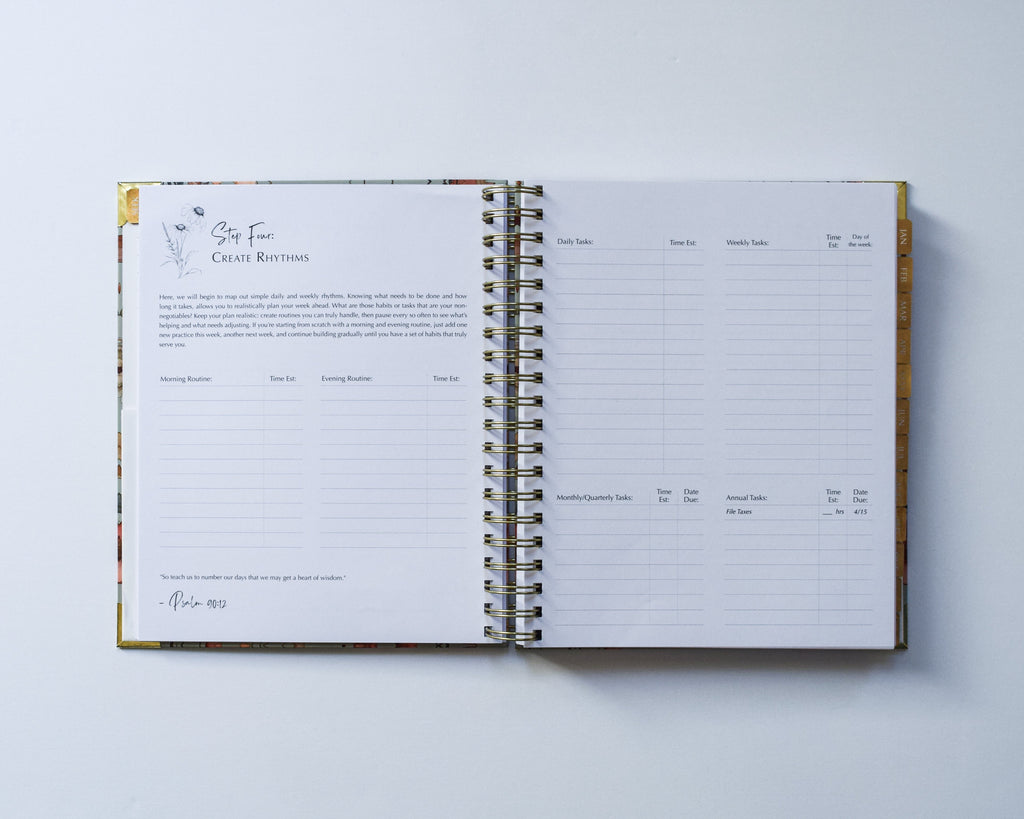 Step Four:
CREATE RHYTHMS
Here, we will begin to map out simple daily and weekly rhythms. Knowing what needs to be done and how
long it takes, allows you to realistically plan your week ahead. What are those habits or tasks that are your non-
negotiables? Keep your plan realistic: create routines you can truly handle, then pause every so often to see what's
helping and what needs adjusting. If you're starting from scratch with a morning and evening routine, just add one
new practice this week, another next week, and continue building gradually until you have a set of habits that truly
serve you.
Morning Routine: Time Est: Evening Routine: Time Est:
"So teach us to number our days that we may get a heart of wisdom."
- Psalm 90:12
Daily Tasks: Time Est:
Weekly Tasks: Time Est: Day of the week:
Monthly/Quarterly Tasks: Time Est: Date Due:
Annual Tasks: Time Est: Date Due:
File Taxes ___ hrs 4/15
JAN
FEB
MAR
APR
JUN
JUL